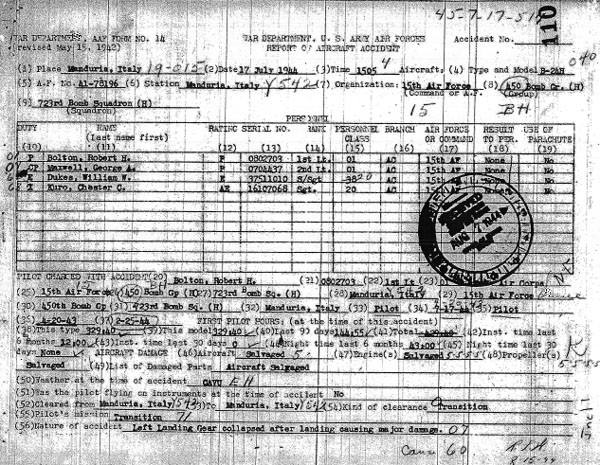 45-7-17-514
WAR DEPARTMENT, AAF FORM NO. 14 WAR DEPARTMENT, U. S. ARMY AIR FORCES Accident No.
(revised May 15, 1942) REPORT OF AIRCRAFT ACCIDENT 110
(1) Place Manduria, Italy 19-015 (2)Date 17 July 1944 (3)Time 1505 4 Aircraft: (4) Type and Model B-24H 040
(5) A.F. No. 41-78196 (6) Station Manduria, Italy (7) Organization: 15th Air Force (8) 450 Bomb Gr. (H)
(Command or A.F.) (Group)
(9) 723rd Bomb Squadron (H) 15 BH
(Squadron)
PERSONNEL
DUTY NAME RATING SERIAL NO. RANK PERSONNEL BRANCH AIR FORCE RESULT USE OF
(last name first) CLASS OR COMMAND TO PER. PARACHUTE
(10) (11) (12) (13) (14) (15) (16) (17) (18) (19)
P Bolton, Robert H. P 0802703 1st Lt. 01 AC 15th AF None No
CP Maxwell, George A. P 2nd Lt. 01 AC 15th AF None No
E Dukes, William W. E 37511010 S/Sgt 20 AC 15th AF None No
X Kuro, Chester C. AE 16107068 Sgt. 20 AC 15th AF None No
RECEIVED
AUG 7 1944
PILOT CHARGED WITH ACCIDENT(20) Bolton, Robert H. (21) 0802703 (22)1st Lt (23) Air Corps
(25) 15th Air Force (26)450 Bomb Gp (H)(27)723rd Bomb Sq. (H) (28)Manduria, Italy (29) 15th Air Force
(30) 450th Bomb Gp (H) (31) 723rd Bomb Sq. (H) (32) Manduria, Italy (33) Pilot (34) 7-17-44 (35)Pilot
(36) 4-20-43 (37) 2-25-44 FIRST PILOT HOURS: (at the time of this accident)
(38)This type 329:40 (39)This model 329:40 (40)Last 90 days 144:55 (41)Total (42)Instrument time last
6 Months 12:00 (43)Inst. time last 30 days 0 (44)Night time last 6 months 43:00 (45) Night time last 30
days None AIRCRAFT DAMAGE (46)Aircraft Salvaged 5 (47)Engine(s) Salvaged 5-5-5-5 (48)Propeller(s)
Salvaged (49)List of Damaged Parts Aircraft Salvaged
(50)Weather at the time of accident CAVU
(51)Was the pilot flying on instruments at the time of accident No
(52)Cleared from Manduria, Italy (53)To Manduria, Italy (54)Kind of clearance Transition
(55)Pilot's mission Transition
(56)Nature of accident Left Landing Gear collapsed after landing causing major damage. 07
60